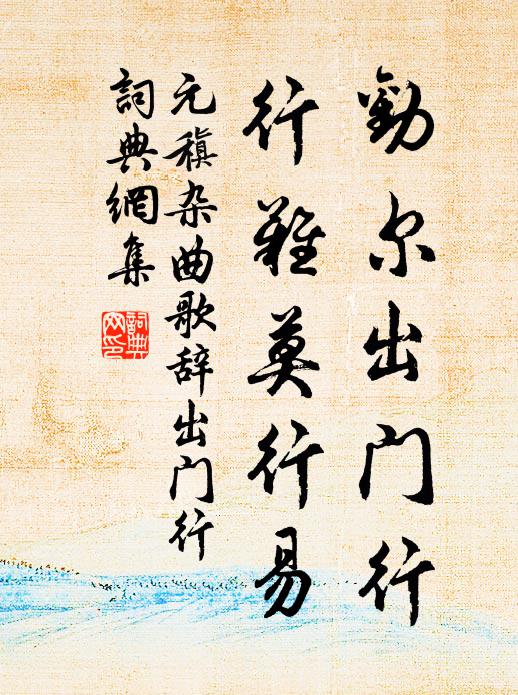 勸尔出门行
行難莫行易
元稹杂曲歌辞出门行
詞典網集
詞典
网印